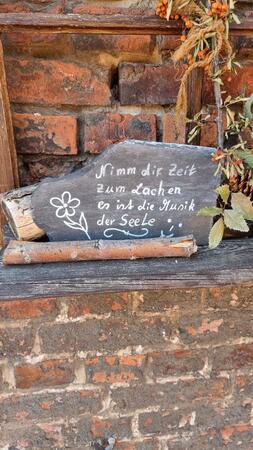 Nimm dir Zeit
zum Lachen
es ist die Musik
der Seele